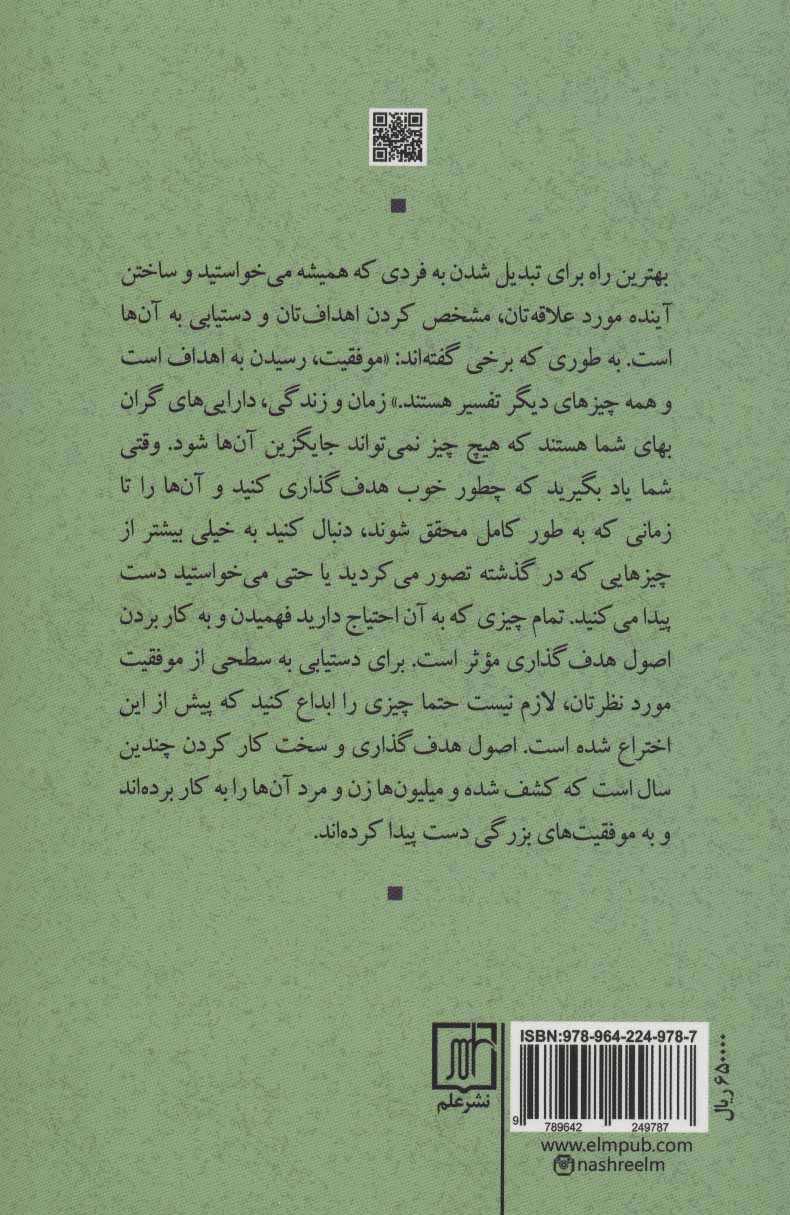 بهترین راه برای تبدیل شدن به فردی که همیشه می‌خواستید و ساختن
آینده مورد علاقه‌تان، مشخص کردن اهداف‌تان و دستیابی به آن‌ها
است. به طوری که برخی گفته‌اند: «موفقیت، رسیدن به اهداف است
و همه چیزهای دیگر تفسیر هستند.» زمان و زندگی، دارایی‌های گران
بهای شما هستند که هیچ چیز نمی‌تواند جایگزین آن‌ها شود. وقتی
شما یاد بگیرید که چطور خوب هدف‌گذاری کنید و آن‌ها را تا
زمانی که به طور کامل محقق شوند، دنبال کنید به خیلی بیشتر از
چیزهایی که در گذشته تصور می‌کردید یا حتی می‌خواستید دست
پیدا می‌کنید. تمام چیزی که به آن احتیاج دارید فهمیدن و به کار بردن
اصول هدف‌گذاری مؤثر است. برای دستیابی به سطحی از موفقیت
مورد نظرتان، لازم نیست حتما چیزی را ابداع کنید که پیش از این
اختراع شده است. اصول هدف‌گذاری و سخت کار کردن چندین
سال است که کشف شده و میلیون‌ها زن و مرد آن‌ها را به کار برده‌اند
و به موفقیت‌های بزرگی دست پیدا کرده‌اند.
نشر علم
ISBN:978-964-224-978-7
9 789642 249787
www.elmpub.com
nashreelm
۶۵۰۰۰۰ ریال